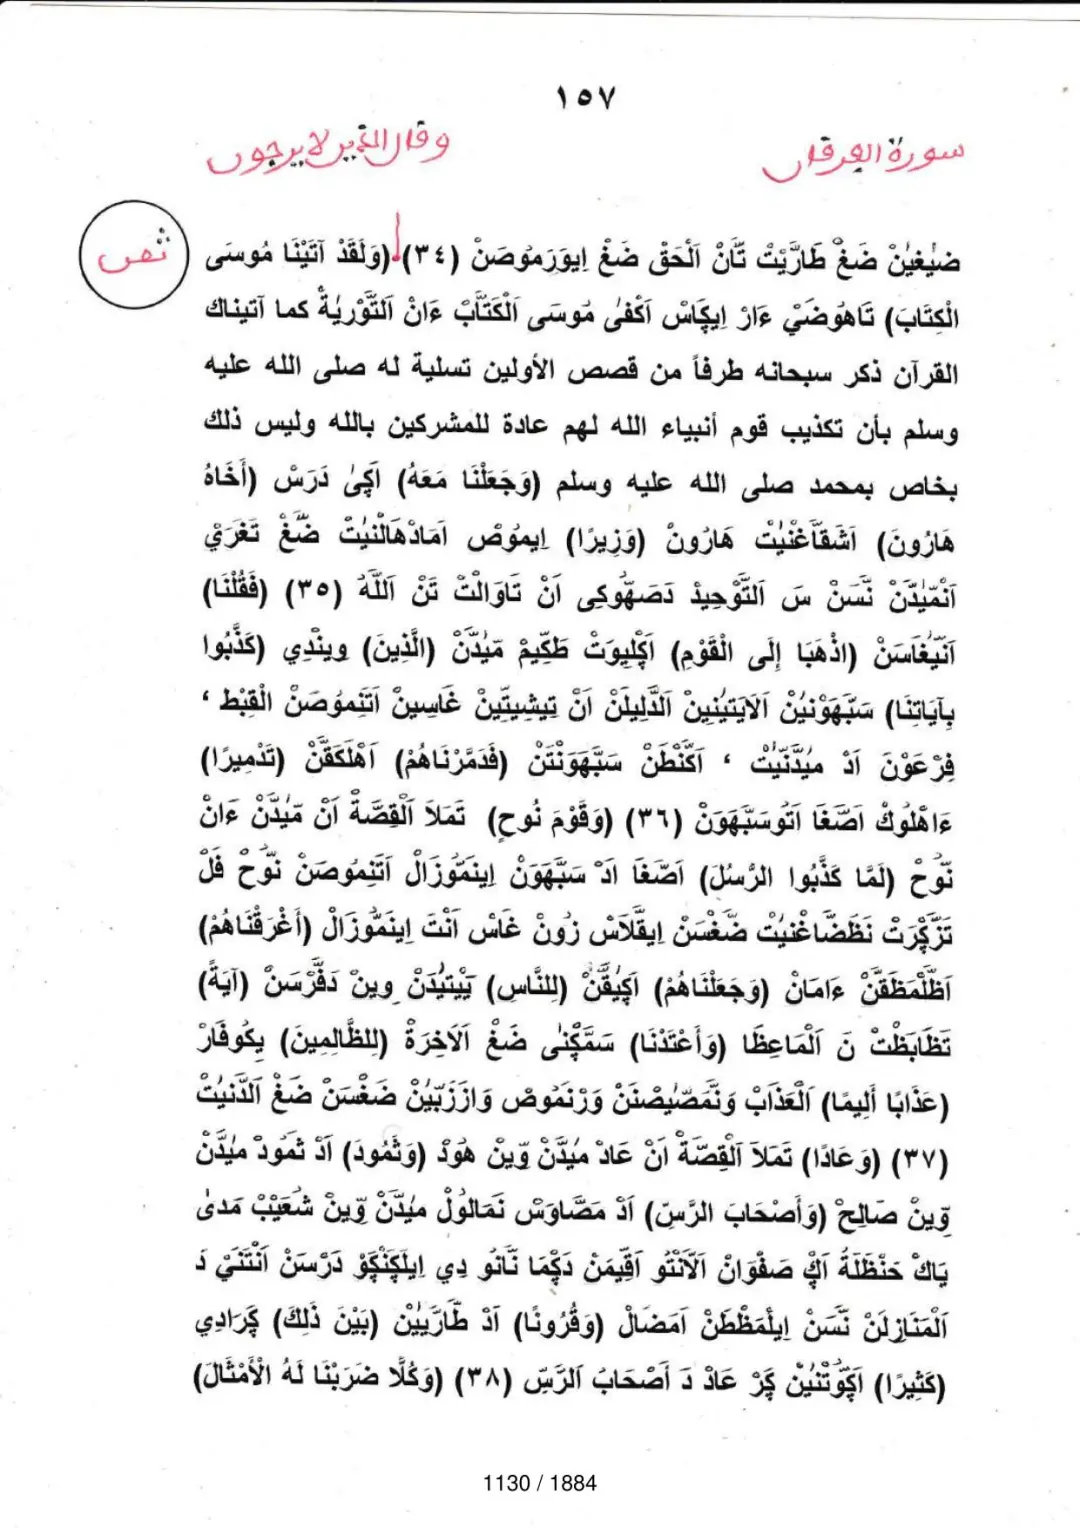 ١٥٧
سورة الفرقان
وقال الذين لا يرجون
ضَيْغَيْنْ ضَغْ طَارَيْتْ تَانْ اَلْحَقْ ضَغْ اِيوَرَمُوصَنْ (٣٤) (وَلَقَدْ آتَيْنَا مُوسَى
الْكِتَابَ) تَاهُوضَيْ ءَارْ اِيكَاسْ اَكْفَىٰ مُوسَى اَلْكَتَّابْ ءَانْ اَلتَّوْرِيَةْ كما آتيناك
القرآن ذكر سبحانه طرفاً من قصص الأولين تسلية له صلى الله عليه
وسلم بأن تكذيب قوم أنبياء الله لهم عادة للمشركين بالله وليس ذلك
بخاص بمحمد صلى الله عليه وسلم (وَجَعَلْنَا مَعَهُ) اَكِىٰ دَرَسْ (أَخَاهُ
هَارُونَ) اَشَقَّاغْنَيْتْ هَارُونْ (وَزِيرًا) اِيمُوصْ اَمَادْهَالْنَيْتْ ضَغْ تَغَرَيْ
اَنْمَيْدَنْ نَسَنْ سَ اَلتَّوْحِيدْ دَصَهُوكِى اَنْ تَاوَالْتْ تَنْ اَللَّهُ (٣٥) (فَقُلْنَا)
اَنَيْغَاسَنْ (اذْهَبَا إِلَى الْقَوْمِ) اَكْلِيوَتْ طَكِيمْ مَيْدَنْ (الَّذِينَ) وِينْدِي (كَذَّبُوا
بِآيَاتِنَا) سَبَهَوْنَيْنْ اَلَايَتَيْنِينْ اَلدَّلِيلَنْ اَنْ تِيشِيتَيْنْ غَاسِينْ اَتَنِمُوصَنْ الْقِبْط ،
فِرْعَوْنْ اَدْ مَيْدَنَّيْتْ ، اَكَنْطَنْ سَبَهَوَنْتَنْ (فَدَمَّرْنَاهُمْ) اَهْلَكَقَنْ (تَدْمِيرًا)
ءَاهْلُوكْ اَصَغَا اَتُوسَبَهَوَنْ (٣٦) (وَقَوْمَ نُوحٍ) تَمَلَا اَلْقِصَّةْ اَنْ مَيْدَنْ ءَانْ
نُوحْ (لَمَّا كَذَّبُوا الرُّسُلَ) اَصَغَا اَدْ سَبَهَوَنْ اِينَمُوزَالْ اَتَنِمُوصَنْ نُوحْ فَلْ
تَزَكَرَتْ نَظَضَاغْنَيْتْ ضَغْسَنْ اِيقَلَاسْ زُونْ غَاسْ اَنْتَ اِينَمُوزَالْ (أَغْرَقْنَاهُمْ)
اَظَلْمَظَقَنْ ءَامَانْ (وَجَعَلْنَاهُمْ) اَكَيْقَنْ (لِلنَّاسِ) يَيْتِيدَنْ وِينْ دَفَرْسَنْ (آيَةً)
تَظَابَظْتْ نَ اَلْمَاعِظَا (وَأَعْتَدْنَا) سَمَكْنَىٰ ضَغْ اَلَاخِرَةْ (لِلظَّالِمِينَ) يِكُوفَارْ
(عَذَابًا أَلِيمًا) اَلْعَذَابْ وَنَمَصَيْصَنَنْ وَرْنَمُوصْ وَازَرَبَيْنْ ضَغْسَنْ ضَغْ اَلدُّنْيَتْ
(٣٧) (وَعَادًا) تَمَلَا اَلْقِصَّةْ اَنْ عَادْ مَيْدَنْ وِينْ هُودْ (وَثَمُودَ) اَدْ ثَمُودْ مَيْدَنْ
وِينْ صَالِحْ (وَأَصْحَابَ الرَّسِّ) اَدْ مَصَّاوَسْ نَمَالُولْ مَيْدَنْ وِينْ شُعَيْبْ مَدىٰ
يَاكْ حَنْظَلَةُ اَكْ صَفْوَانْ اَلَانْتُو اَقِيمَنْ دَكَمَا نَانُو دِي اِيلَكِنْكَوْ دَرْسَنْ اَنْتَنَيْ دَ
اَلْمَنَازِلَنْ نَسَنْ اِيلْمَظْطَنْ اَمَضَالْ (وَقُرُونًا) اَدْ طَارَيْيَنْ (بَيْنَ ذَلِكَ) كَرَادِي
(كَثِيرًا) اَكَوْتَنَيْنْ كَرْ عَادْ دَ اَصْحَابَ اَلرَّسِّ (٣٨) (وَكُلًّا ضَرَبْنَا لَهُ الْأَمْثَالَ)
1130 / 1884